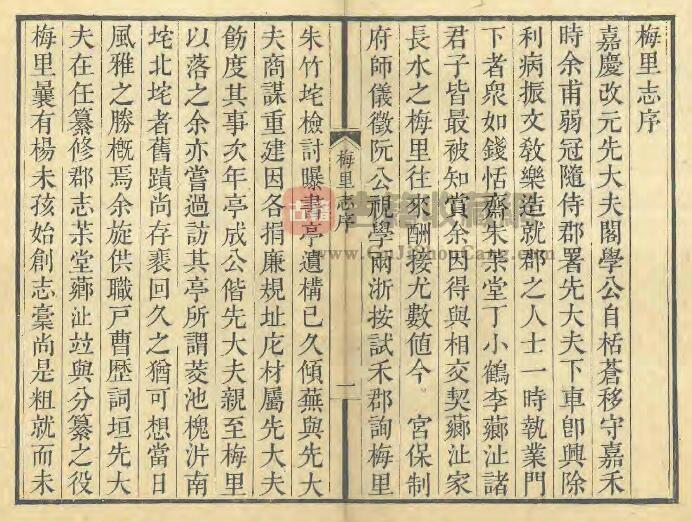 梅里志序
嘉慶改元先大夫閣學公自栝蒼移守嘉禾
時余甫弱冠隨侍郡署先大夫下車卽興除
利病振文敎樂造就郡之人士一時執業門
下者衆如錢恬齋朱茮堂丁小鶴李薌沚諸
君子皆最被知賞余因得與相交契薌沚家
長水之梅里往來酬接尤數値今 宮保制
府師儀徵阮公視學兩浙按試禾郡詢梅里
梅里志序
一
朱竹垞檢討曝書亭遺構已久傾蕪與先大
夫商謀重建因各捐廉規址庀材屬先大夫
飭度其事次年亭成公偕先大夫親至梅里
以落之余亦嘗過訪其亭所謂菱池槐沜南
垞北垞者舊蹟尚存裵回久之猶可想當日
風雅之勝槪焉余旋供職戸曹歷詞垣先大
夫在任纂修郡志茮堂薌沚竝與分纂之役
梅里曩有楊未孩始創志稾尚是粗就而未
古籍收藏網
www.GuJiShouCang.com